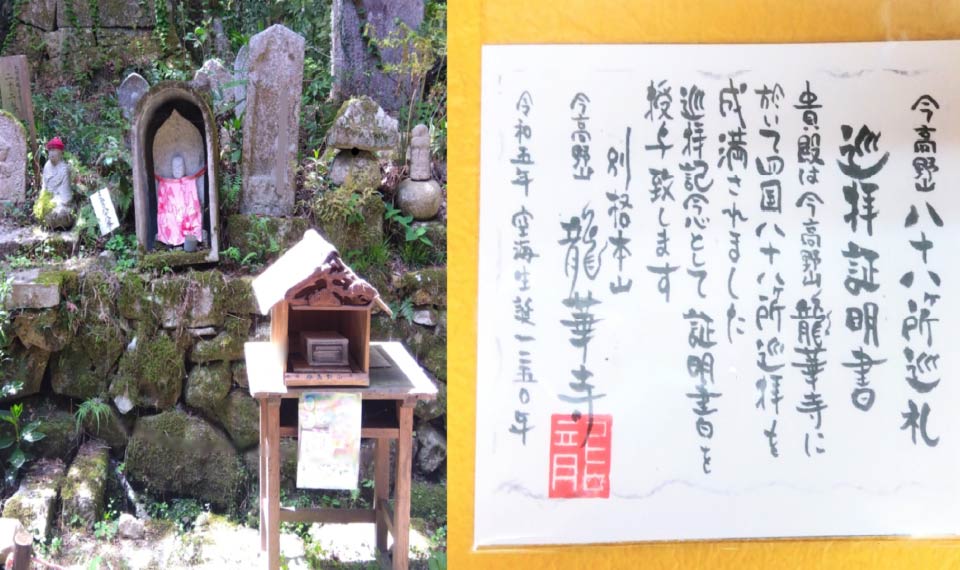 今高野山八十八所巡礼
巡拝証明書
貴殿は今高野山龍華寺に
於いて四国八十八所巡拝を
成満されました
巡拝記念として証明書を
授与致します
別格本山
今高野山 龍華寺
龍
令和五年 空海生誕一二五〇年